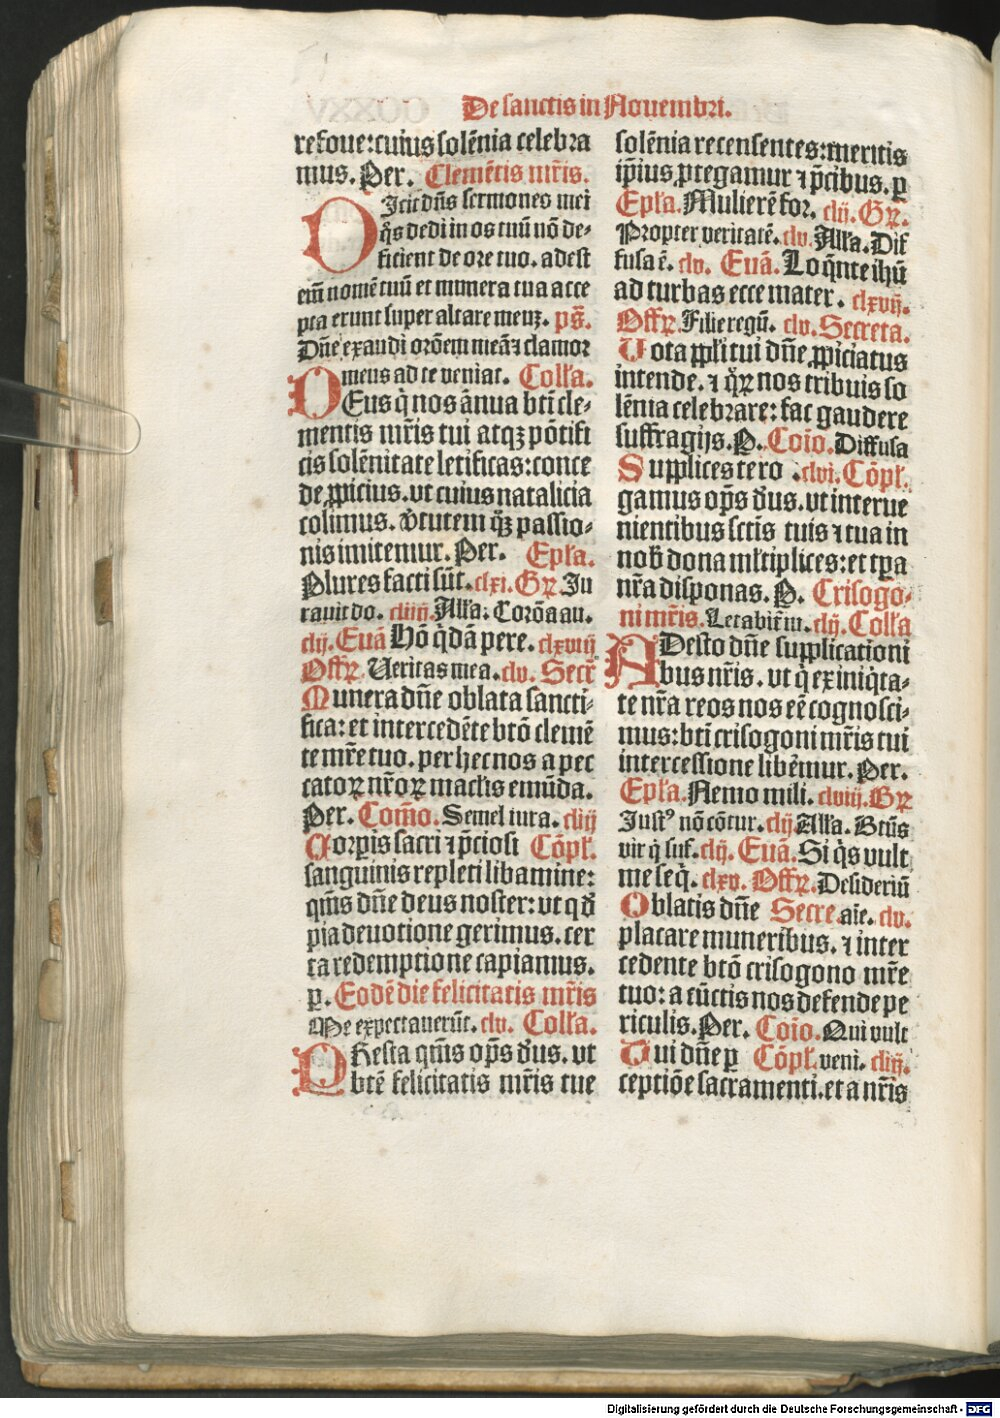 De sanctis in Nouembri.
refoue: cuius solēnia celebra
mus. Per. Clemētis mr̄is.
DIcit dn̄s sermones mei
q̄s dedi in os tuū nō de-
ficient de ore tuo. adest
em̄ nomē tuū et munera tua acce
pta erunt super altare meuꝫ. ps̄.
Dn̄e exaudi orōem meā ⁊ clamor
meus ad te veniat. Coll'a.
DEus q̄ nos ānua bt̄i cle-
mentis mr̄is tui atqꝫ pōtifi
cis solēnitate letificas: conce
de ꝓpicius. vt cuius natalicia
colimus. v̄tutem q̄ꝫ passio-
nis imitemur. Per. Epl'a.
Plures facti sūt. clxi. Gꝝ. Ju
rauit do. cliiij. All'a. Corōa au.
clij. Euā Hō q̄dā pere. clxviij
Offꝝ. Ueritas mea. clv. Secr̄
Munera dn̄e oblata sancti-
fica: et intercedēte btō clemē
te mr̄e tuo. per hec nos a pec
catoꝝ nr̄oꝝ macl'is emūda.
Per. Com̄o. Semel iura. cliij
Corꝑis sacri ⁊ p̄ciosi Cōpl'.
sanguinis repleti libamine:
qm̄s dn̄e deus noster: vt q d̄
pia deuotione gerimus. cer
ta redemptione capiamus.
p. Eodē die felicitatis mr̄is
Me expectauerūt. clv. Coll'a.
PResta qm̄s op̄s d̄us. vt
btē felicitatis mr̄is tue
solēnia recensentes: meritis
ip̄ius ꝓtegamur ⁊ p̄cibus. p
Epl'a. Mulierē for. clij. Gꝝ.
Propter veritatē. clv. All'a. Dif
fusa ē. clv. Euā. Loq̄nte ihū
ad turbas ecce mater. clxvij.
Offꝝ. Filie regū. clv. Secreta.
Uota ppl'i tui dn̄e ꝓpiciatus
intende. ⁊ q̄ꝝ nos tribuis so
lēnia celebrare: fac gaudere
suffragijs. P. Cōio. Diffusa
Supplices tero .clvi. Cōpl'.
gamus op̄s d̄us. vt interue
nientibus sctīs tuis ⁊ tua in
nob̄ dona ml'tiplices: et tp̄a
nr̄a disponas. P. Crisogo-
ni mr̄is. Letabit̄ iu. clij. Coll'a
ADesto dn̄e supplicationi
bus nr̄is. vt q̄ ex iniq̄ta-
te nr̄a reos nos eē cognosci-
mus: bt̄i crisogoni mr̄is tui
intercessione libēmur. Per.
Epl'a. Nemo mili. clviij. Gꝝ
Just⁹ nō cōtur. clij. All'a. Btūs
vir q̄ suf. clij. Euā. Si q̄s vult
me seq̄. clxv. Offꝝ. Desideriū
Oblatis dn̄e Secre aīe. clv.
placare muneribus. ⁊ inter
cedente btō crisogono mr̄e
tuo: a cūctis nos defende pe
riculis. Per. Cōio. Qui vult
Tui dn̄e p Cōpl'. veni. cliij.
ceptiōe sacramenti. et a nr̄is
Digitalisierung gefördert durch die Deutsche Forschungsgemeinschaft - DFG